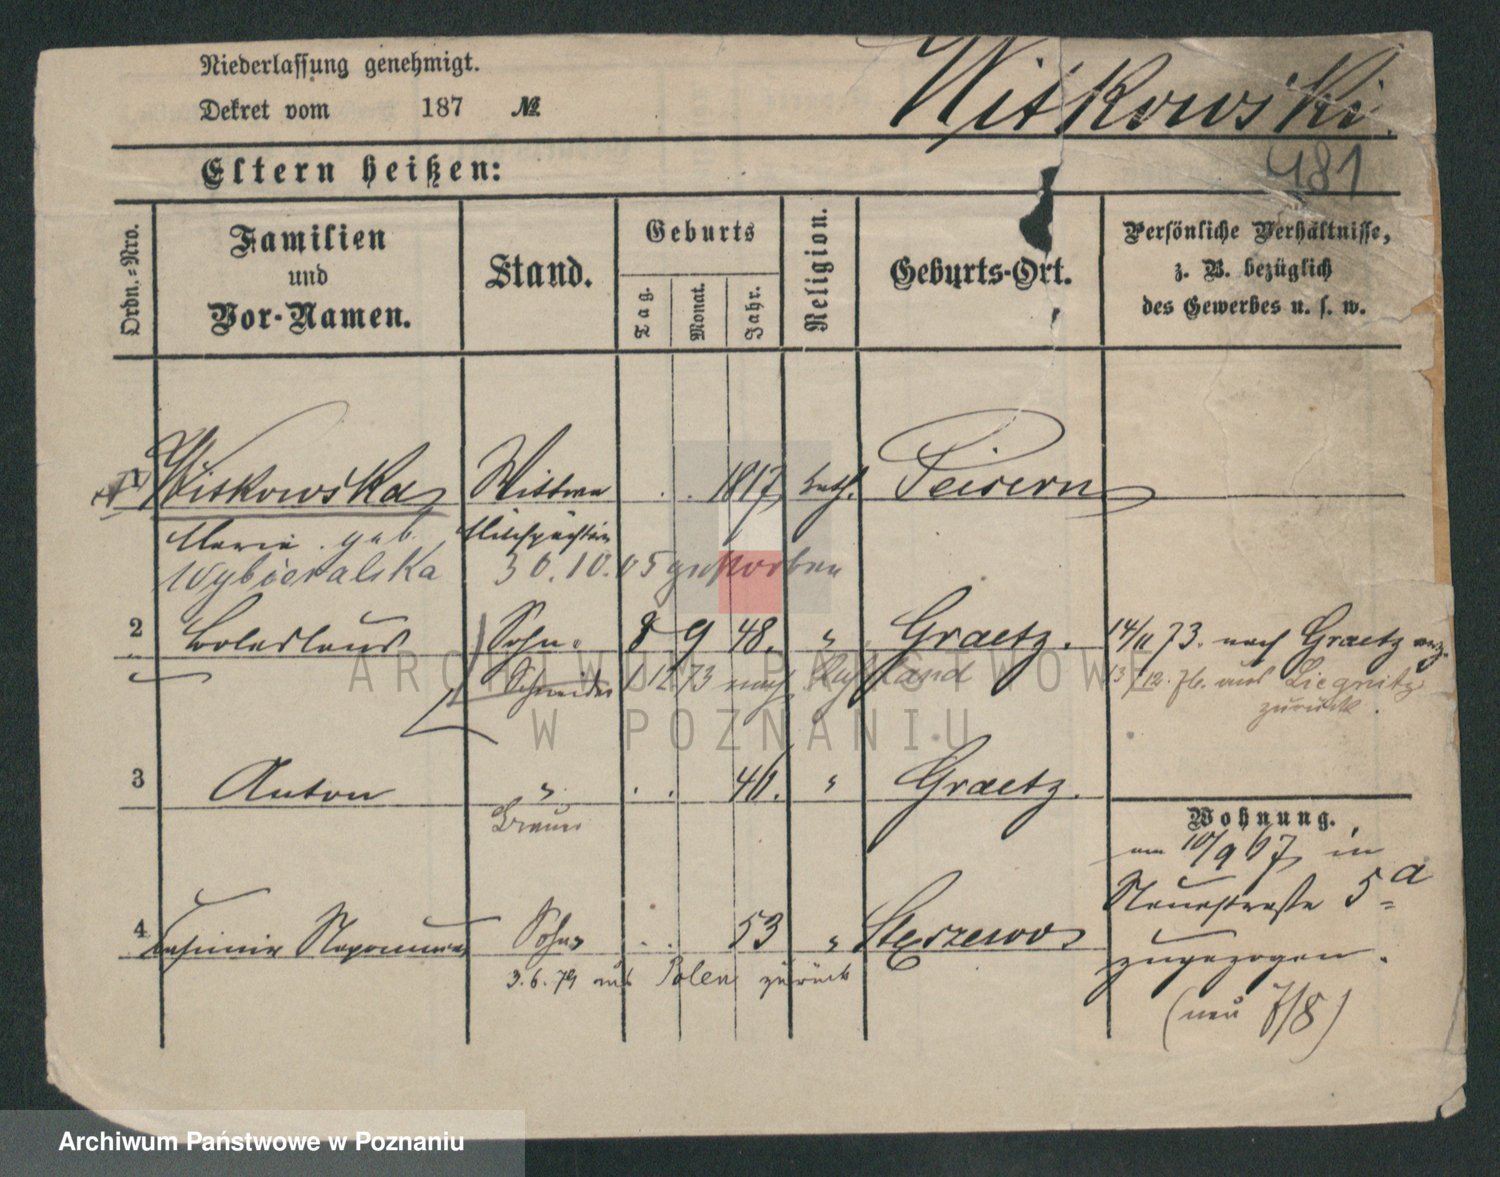 Niederlassung genehmigt.
Dekret vom 187 №
Witkowski.
481
Eltern heißen:
Ordn.-Nro.
Familien
und
Vor-Namen.
Stand.
Geburts
Tag.
Monat.
Jahr.
Religion.
Geburts-Ort.
Persönliche Verhältnisse,
z. B. bezüglich
des Gewerbes u. s. w.
1 Witkowska Wittwe 1817 kath. Peisern
Marie geb. Milchpächterin
Wybieralska 30.10.05 gestorben
2 Boleslaus Sohn 8 9 48. " Graetz. 14/11 73. nach Graetz
Schneider 1 12 73 nach Rußland 13/12. 76. aus Liegnitz
zurück.
3 Anton " 46. " Graetz.
Brauer
Wohnung.
am 10/9 67 in
4 Casimir Nepomucen Sohn 53 " Neuestraße 5a
3.6.79 aus Polen zurück zugezogen.
(neu 7/8)
ARCHIWUM PAŃSTWOWE
W POZNANIU
Archiwum Państwowe w Poznaniu